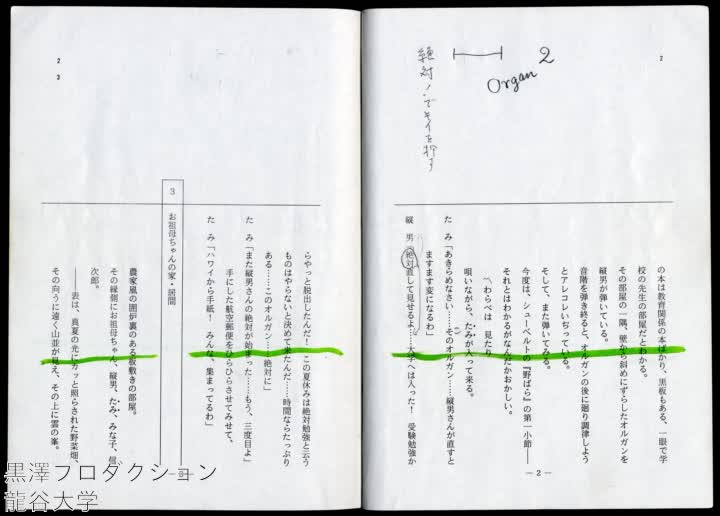 2
Organ
2
絶対!でキイを押す
の本は教育関係の本ばかり、黒板もある、一眼で学
校の先生の部屋だとわかる。
その部屋の一隅、壁から斜めにずらしたオルガンを
縦男が弾いている。
音階を弾き終ると、オルガンの後に廻り調律しよう
とアレコレいぢっている。
そして、また弾いてみる。
今度は、シューベルトの『野ばら』の第一小節――
それとはわかるがなんだかおかしい。
〽わらべは 見たり
唄いながら、たみが入って来る。
た み「あきらめなさい……そのオルガン……縦男さんが直すと
ますます変になるわ」
縦 男「絶対直して見せるよ……大学へは入った! 受験勉強か
― 2 ―
2
3
らやっと脱出したんだ! この夏休みは絶対勉強と云う
ものはやらないと決めて来たんだ……時間ならたっぷり
ある……このオルガン……絶対に」
た み「また縦男さんの絶対が始まった……もう、三度目よ」
手にした航空郵便をひらひらさせてみせて、
た み「ハワイから手紙! みんな、集まってるわ」
3 お祖母ちゃんの家・居間
農家風の囲炉裏のある板敷きの部屋。
その縁側にお祖母ちゃん、縦男、たみ、みな子、信
次郎。
――表は、真夏の光にカッと照らされた野菜畑、
その向うに遠く山並が見え、その上に雲の峯。
― 3 ―
黒澤プロダクション
龍谷大学